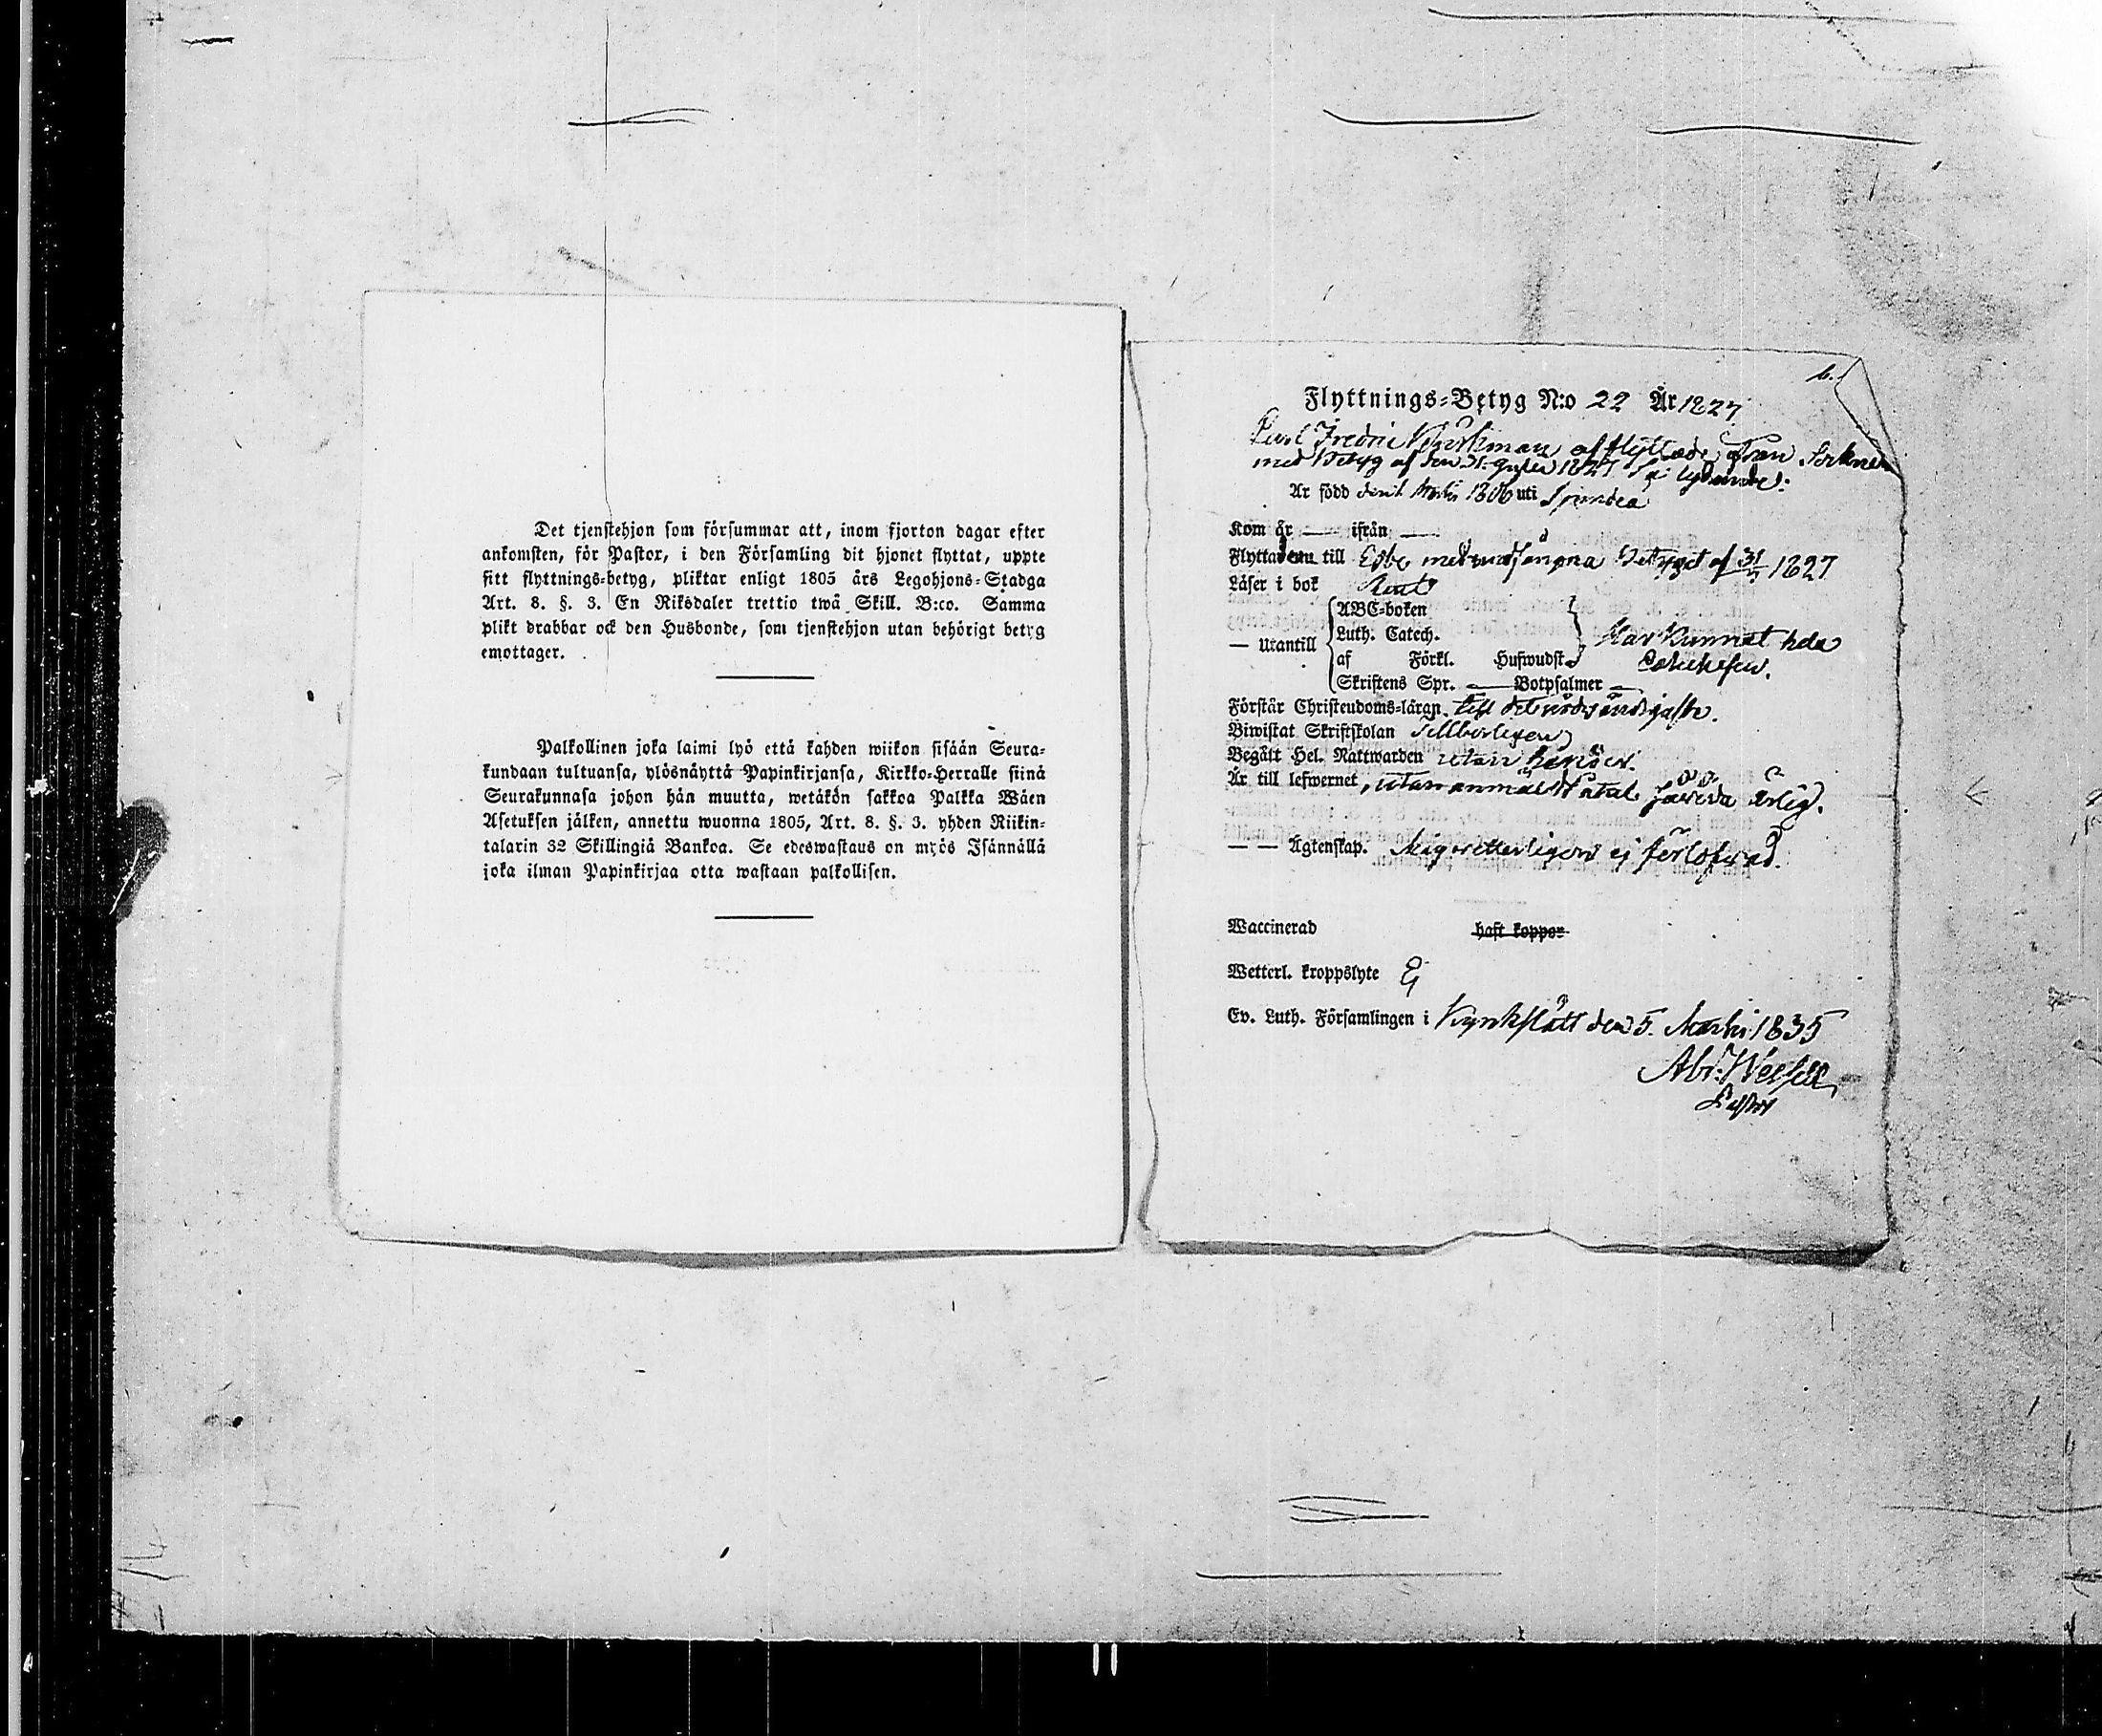 Det tjenstehjon som försummar att, inom fjorton dagar efter
ankomsten, för Pastor, i den Församling dit hjonet flyttat, uppte
sitt flyttnings-betyg, pliktar enligt 1805 års Legohjons-Stadga
Art. 8. §. 3. En Riksdaler trettio twå Skill. B:co. Samma
plikt drabbar ock den Husbonde, som tjenstehjon utan behörigt betyg
emottager.
Palkollinen joka laimi lyö että kahden wiikon sisään Seura-
kundaan tultuansa, ylösnäyttä Papinkirjansa, Kirkko-Herralle siinä
Seurakunnasa johon hän muutta, wetäkön sakkoa Palkka Wäen
Asetuksen jälken, annettu wuonna 1805, Art. 8. §. 3. yhden Riikin-
talarin 32 Skillingiä Bankoa. Se edeswastaus on myös Isännällä
joka ilman Papinkirjaa otta wastaan palkollisen.
b.
Flyttnings-Betyg N:o 22 År 1827
Fredric afflyttade från Socknen
med Betyg af den 31 1827 så lydande:
Är född den 1 Martii 1806 uti
Kom år — ifrån —
Flyttade till Esbo med Betyget af 31 1827
Läser i bok Rent
— Utantill
ABC-boken
Luth. Catech. Har kunnat hela
af Förkl. Hufwudst. Catechesen.
Skriftens Spr. — Botpsalmer —
Förstår Christendoms-lärgn. till det nödvändigaste.
Biwistat Skriftskolan tillbörligen
Begått Hel. Nattwarden utan
Är till lefwernet, utan anmäldt ärlig.
— — Ägtenskap. ej förlofwad.
Waccinerad haft koppor
Wetterl. kroppslyte Ej
Ev. Luth. Församlingen i Kyrkslätt den 5. Martii 1835
Abr:
Pastor